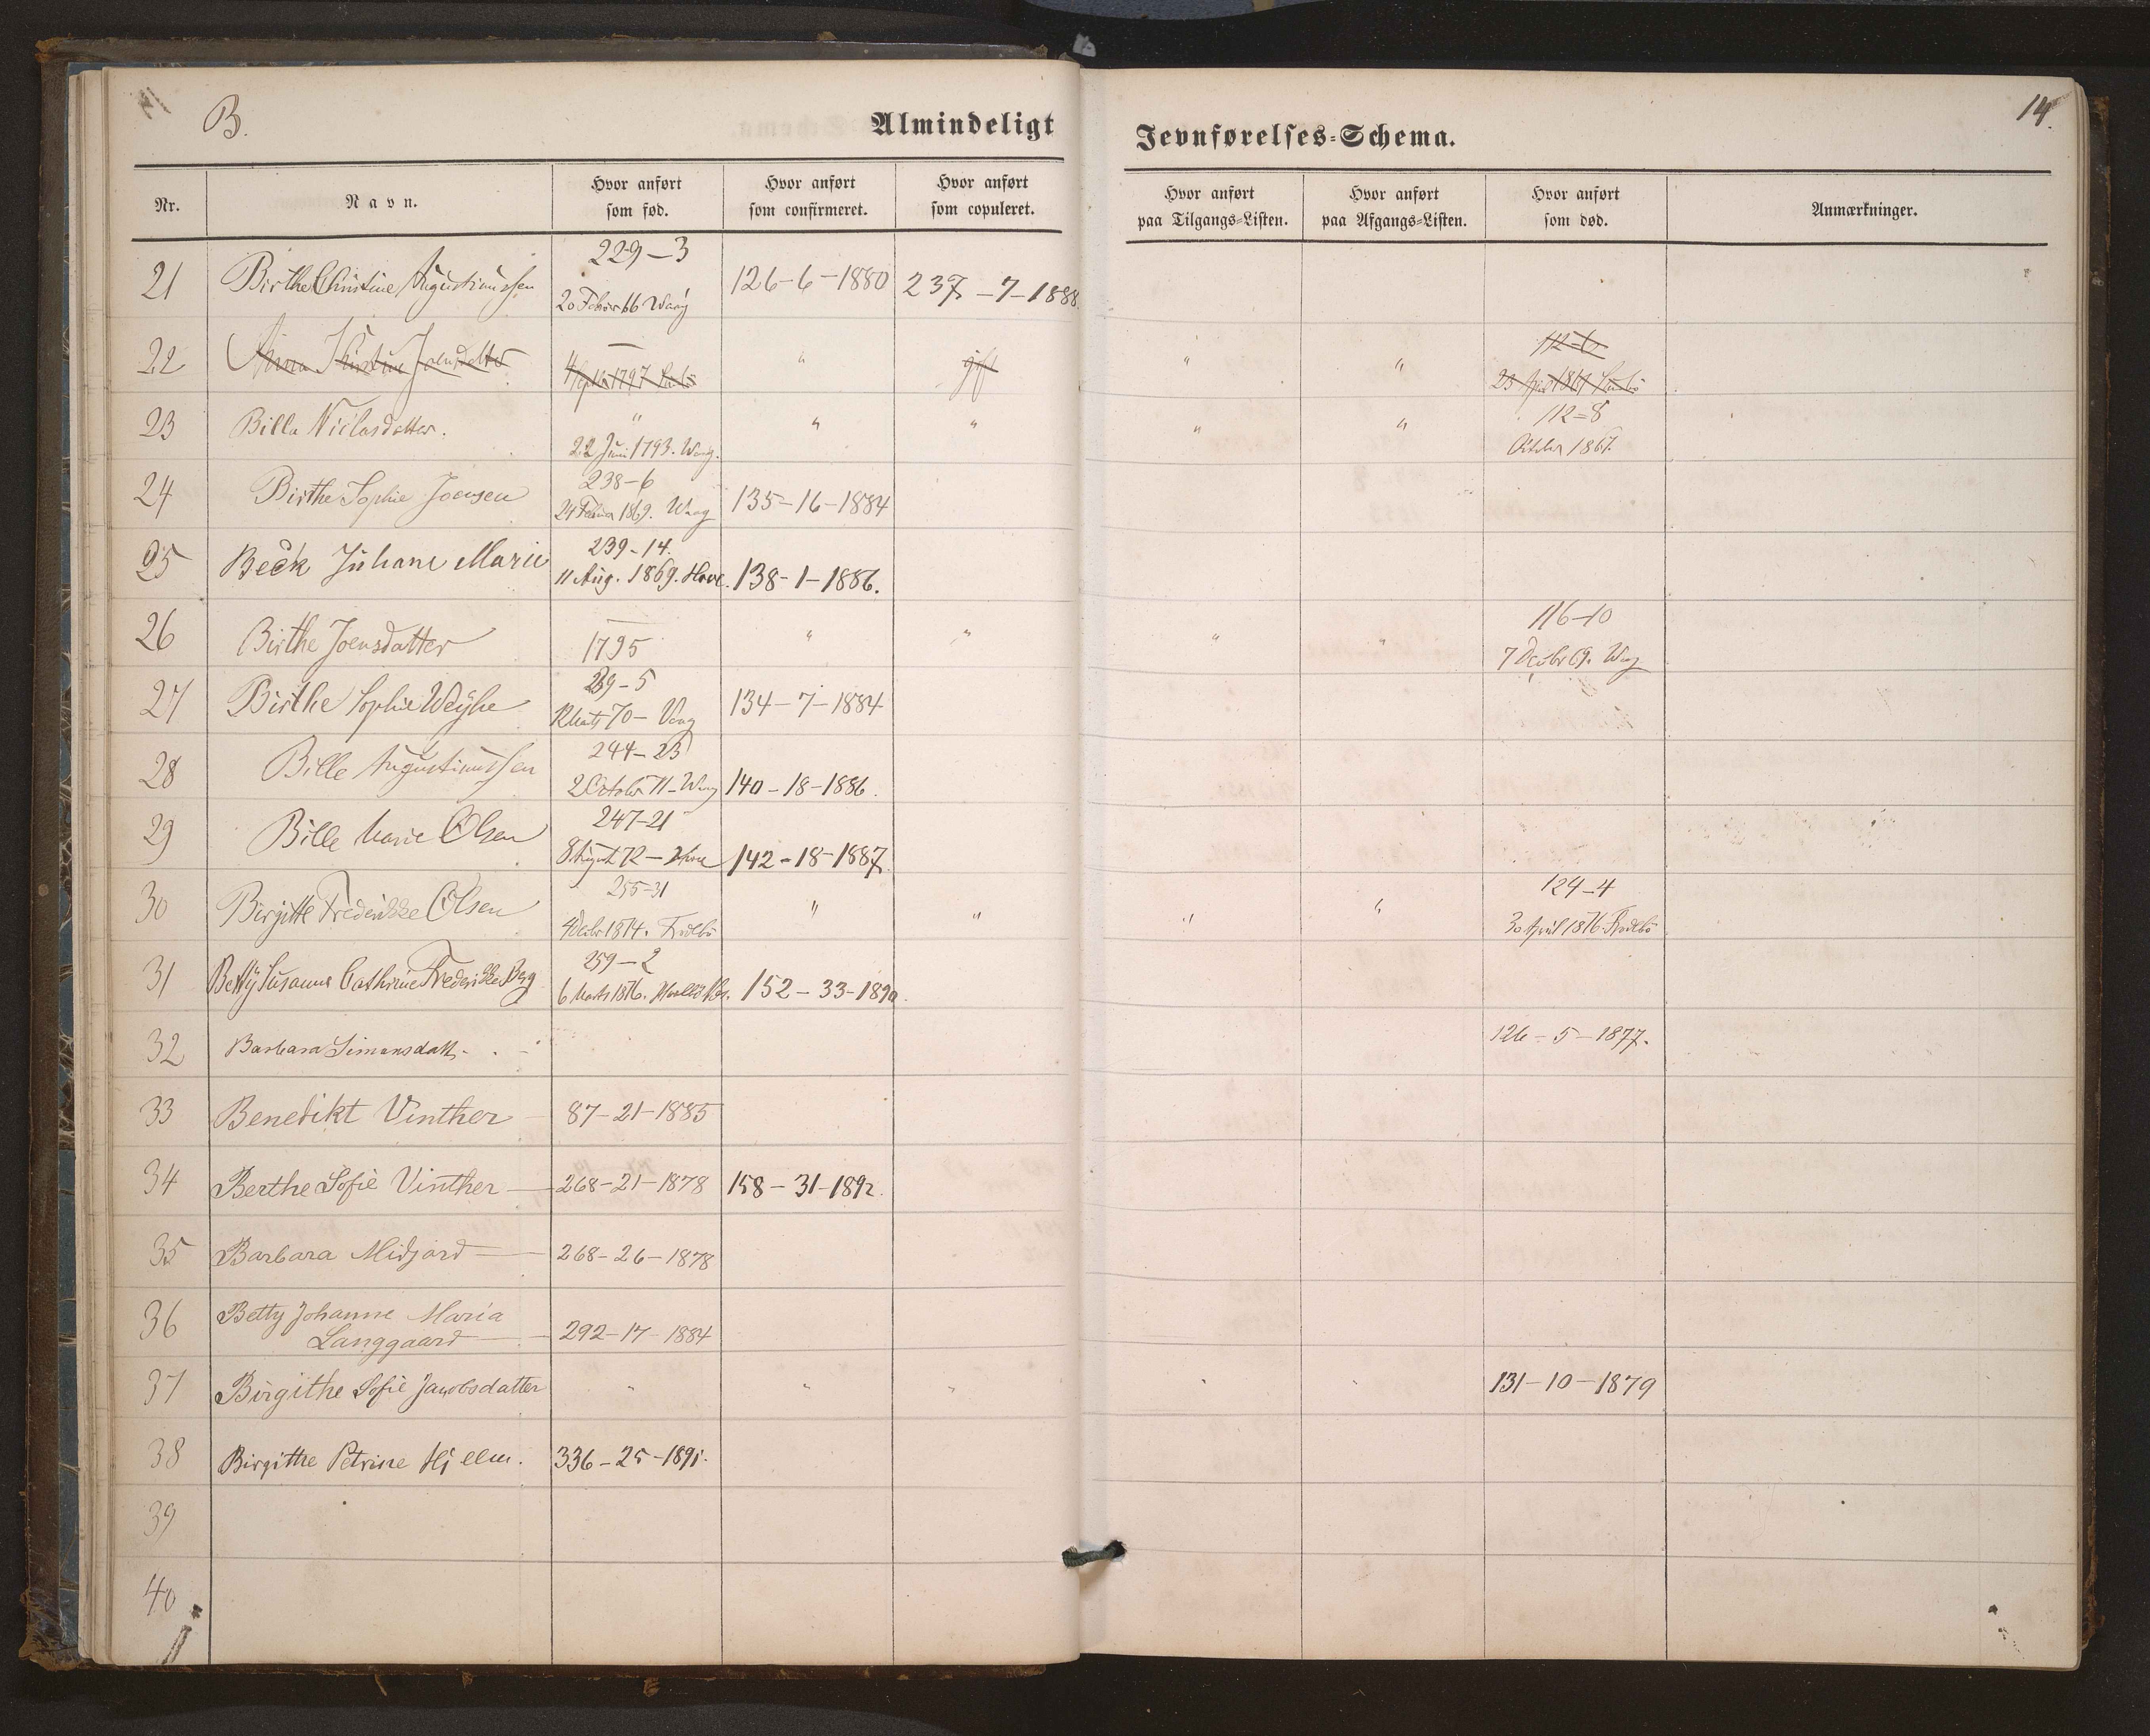 B.
Almindeligt
Jevnførelses-Schema.
14.
Nr.
Navn.
Hvor anført som fød.
Hvor anført som confirmeret.
Hvor anført som copuleret.
Hvor anført paa Tilgangs-Listen.
Hvor anført paa Afgangs-Listen.
Hvor anført som død.
Anmærkninger.
229–3
21 Birthe Christine Augustinussen 126–6–1880 237–7–1888
20 Febr 66 Waag
112–6
22 Anna Kirstine Joensdatter — " gift " "
4 Septbr 1797 23 April 1867
23 Billa Niclasdatter. " " " " " 112–8
22 Juni 1793. Waag. October 1867.
238–6
24 Birthe Sophie Joensen 135–16–1884
24 Februar 1869. Waag
239–14.
25 Beck Juliane Marie 138–1–1886.
11 Aug. 1869. Hove.
116–10
26 Birthe Joensdatter — " " " "
1795 7 Decbr 69. Waag
239–5
27 Birthe Sophie Weyhe 134–7–1884
12 Marts 70 – Vaag
244–23
28 Bille Augustinussen 140–18–1886.
2 October 71 – Waag
247–21
29 Bille Marie Olsen 142–18–1887.
8 August 72 – Hove
255–31 124–4
30 Birgitte Frederikke Olsen " " " "
4 Decbr 1874. Frodebø 30 April 1876. Frodebø
259–2
31 Betty Susanne Cathrine Frederikke Berg 152–33–1890.
6 Marts 1876.
32 Barbara Simonsdatt. 126–5–1877.
33 Benedikt Vinther 87–21–1885
34 Berthe Sofie Vinther — 268–21–1878 158–31–1892.
35 Barbara Midjord — 268–26–1878
36 Betty Johanne Maria
Langgaard — 292–17–1884
37 Birgithe Sofie Jacobsdatter " " " " " 131–10–1879
38 Birgithe Petrine Hjelm. 336–25–1891.
39
40